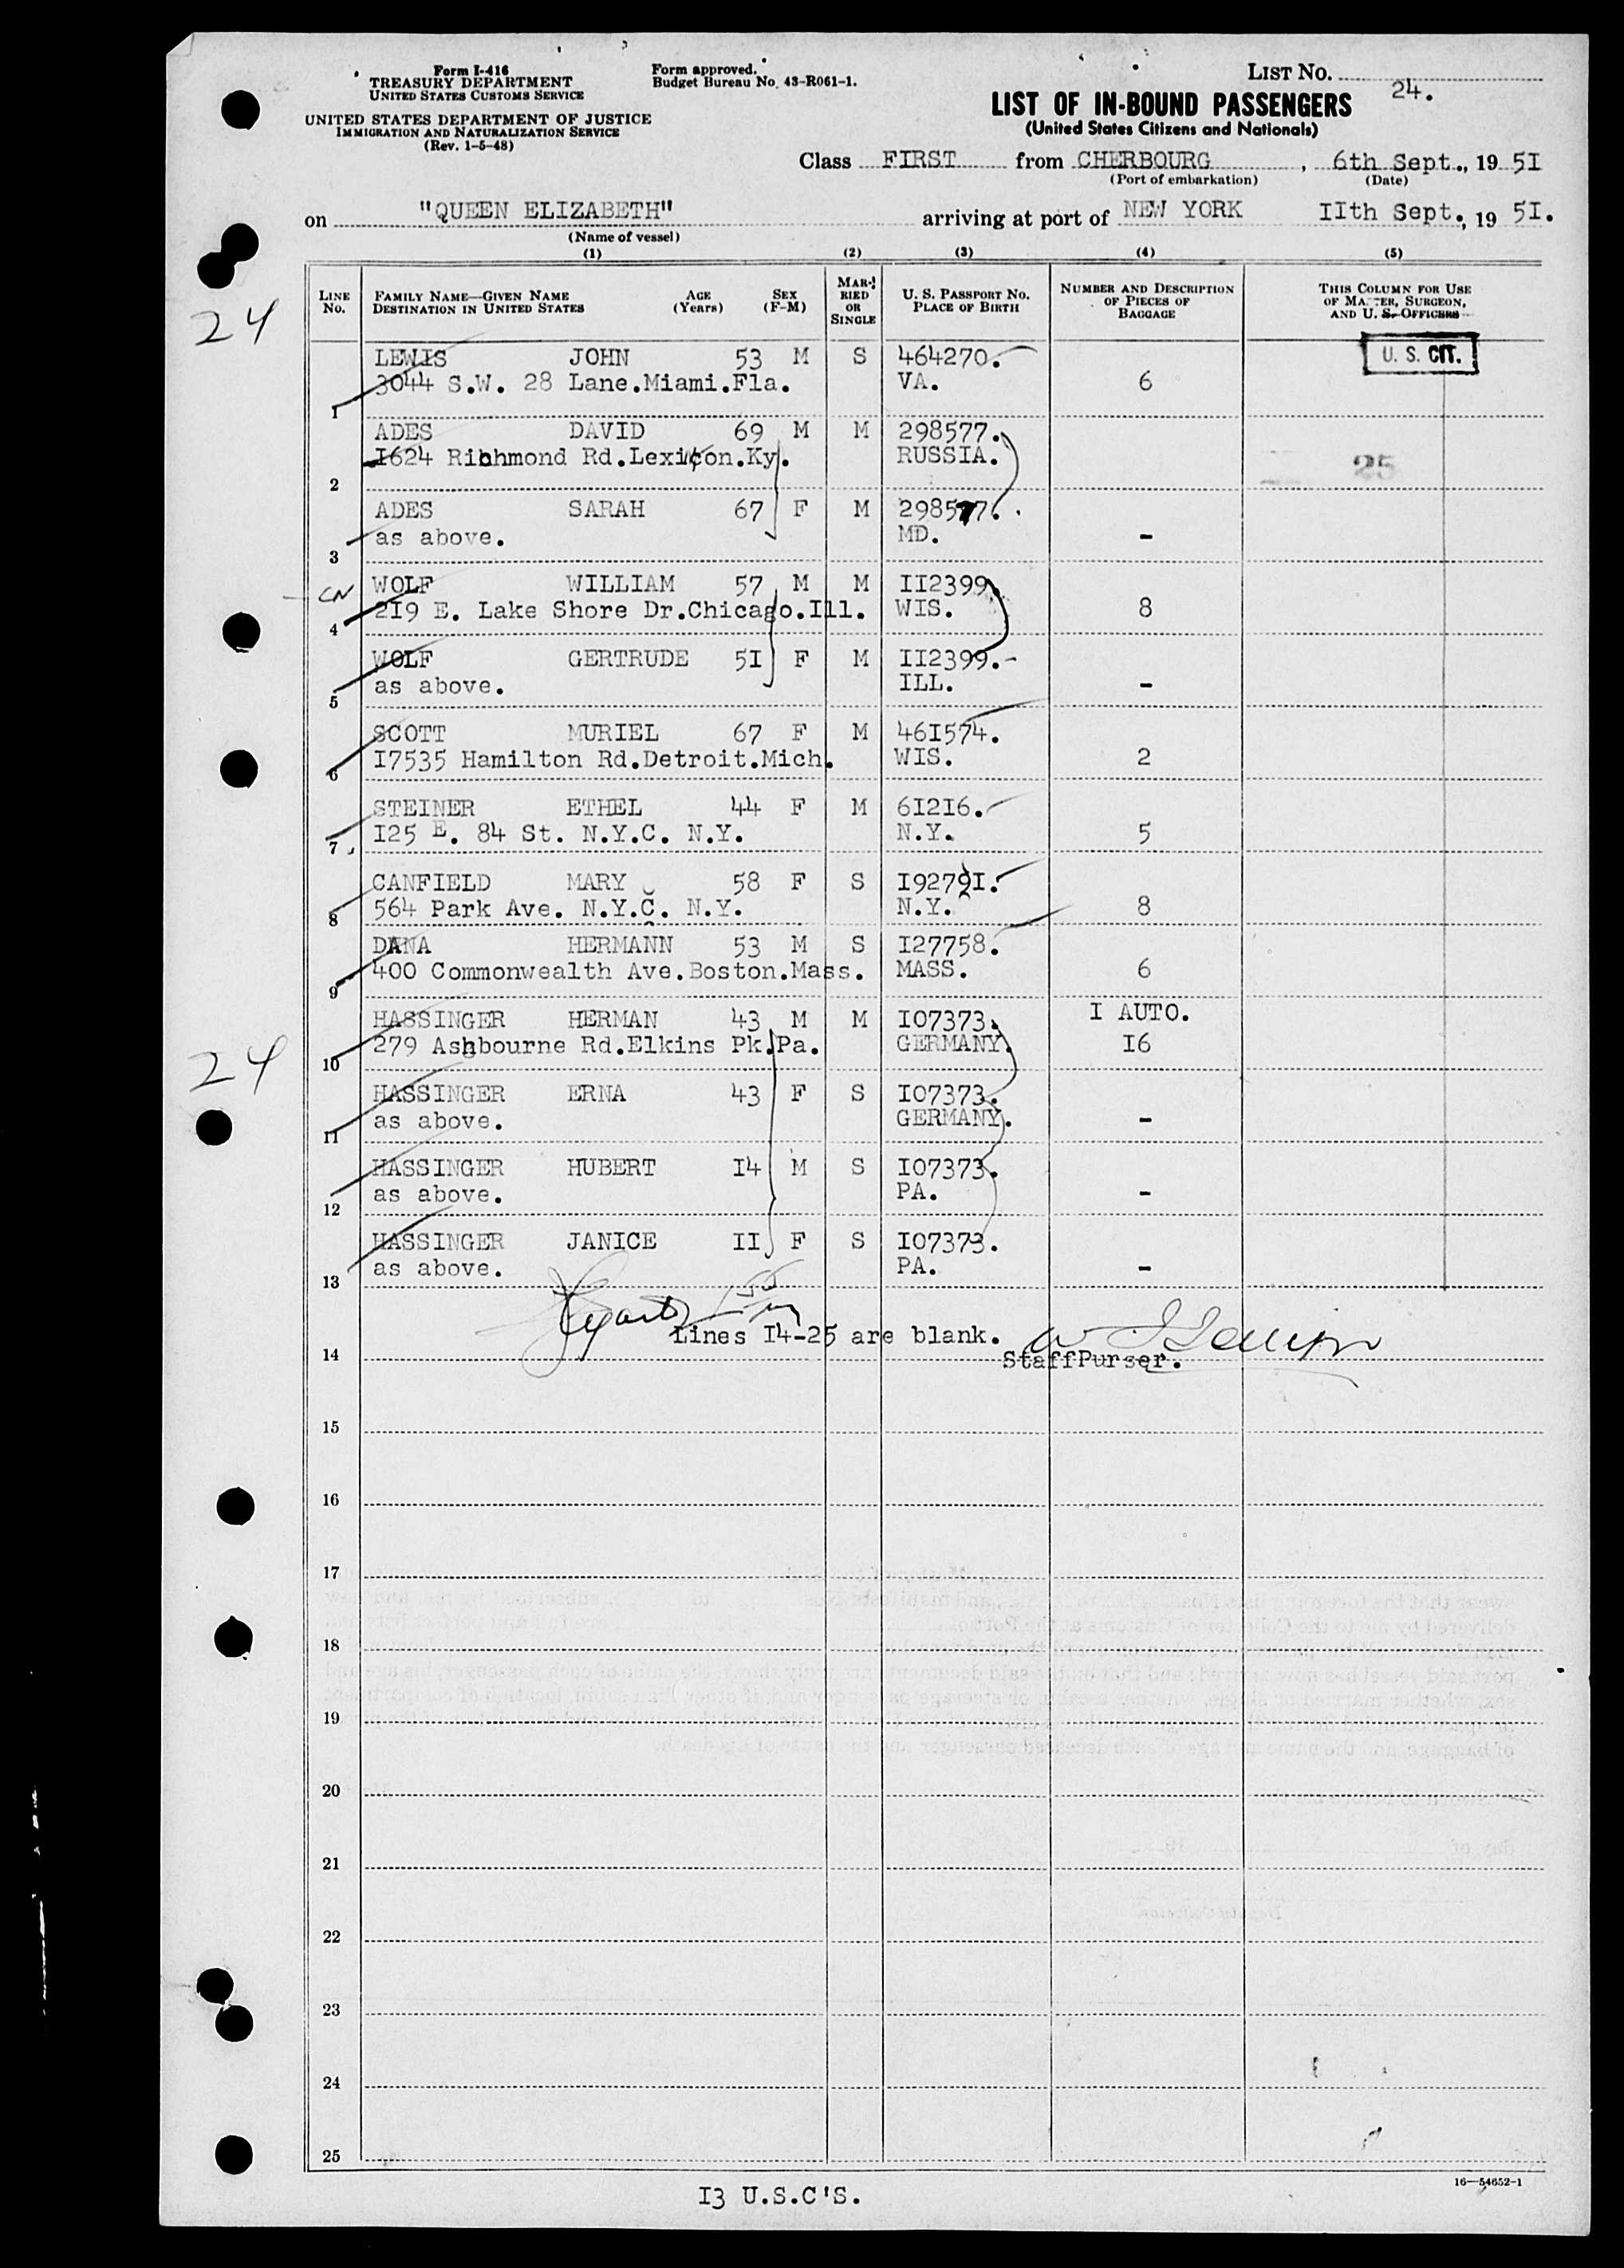 Form I-416
TREASURY DEPARTMENT
UNITED STATES CUSTOMS SERVICE
UNITED STATES DEPARTMENT OF JUSTICE
IMMIGRATION AND NATURALIZATION SERVICE
(Rev. 1-5-48)
Form approved.
Budget Bureau No. 43-R061-1.
LIST NO.
24.
LIST OF IN-BOUND PASSENGERS
(United States Citizens and Nationals)
Class FIRST from CHERBOURG, 6th Sept., 19 5I
(Port of embarkation) (Date)
on "QUEEN ELIZABETH" arriving at port of NEW YORK IIth Sept., 19 5I.
(Name of vessel)
(1) (2) (3) (4) (5)
LINE No. FAMILY NAME—GIVEN NAME DESTINATION IN UNITED STATES AGE (Years) SEX (F-M) MARRIED OR SINGLE U. S. PASSPORT NO. PLACE OF BIRTH NUMBER AND DESCRIPTION OF PIECES OF BAGGAGE THIS COLUMN FOR USE OF MASTER, SURGEON, AND U. S. OFFICERS
24
LEWIS JOHN 53 M S 464270. U. S. CIT.
3044 S.W. 28 Lane.Miami.Fla. VA. 6
1
ADES DAVID 69 M M 298577.
1624 Richmond Rd.Lexington.Ky. RUSSIA. 25
2
ADES SARAH 67 F M 298577.
as above. MD. -
3
CN WOLF WILLIAM 57 M M II2399.
219 E. Lake Shore Dr.Chicago.Ill. WIS. 8
4
WOLF GERTRUDE 5I F M II2399.-
as above. ILL. -
5
SCOTT MURIEL 67 F M 46I574.
I7535 Hamilton Rd.Detroit.Mich. WIS. 2
6
STEINER ETHEL 44 F M 6I2I6.
I25 E. 84 St. N.Y.C. N.Y. N.Y. 5
7
CANFIELD MARY 58 F S I9279I.
564 Park Ave. N.Y.C. N.Y. N.Y. 8
8
DANA HERMANN 53 M S I27758.
400 Commonwealth Ave.Boston.Mass. MASS. 6
9
HASSINGER HERMAN 43 M M I07373. I AUTO.
279 Ashbourne Rd.Elkins Pk.Pa. GERMANY. I6
10
24
HASSINGER ERNA 43 F S I07373.
as above. GERMANY. -
11
HASSINGER HUBERT I4 M S I07373.
as above. PA. -
12
HASSINGER JANICE II F S I07373.
as above. PA. -
13
Lines I4-25 are blank.
StaffPurser.
14
15
16
17
18
19
20
21
22
23
24
25
16—54652-1
I3 U.S.C'S.